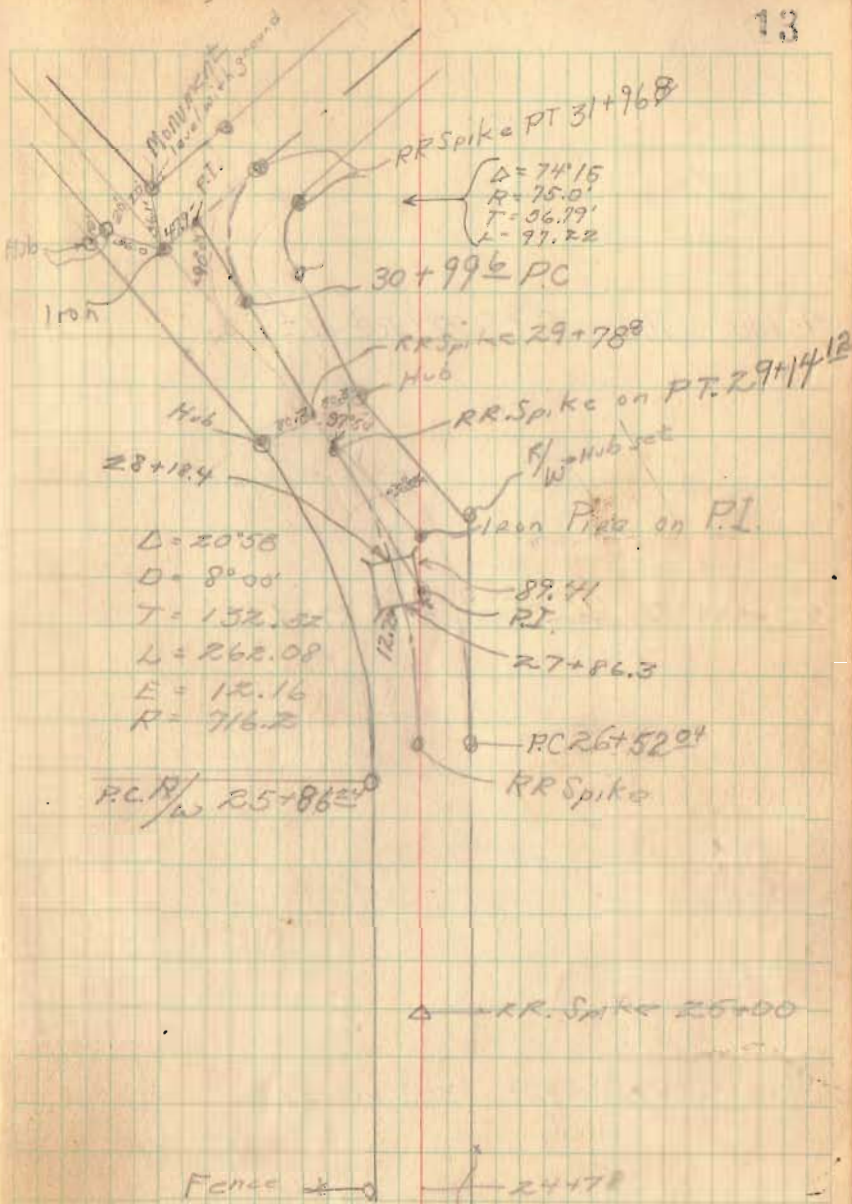 13
Monument
level with ground
RR Spike PT 31+96⁸
P.I.
Δ = 74°15
R = 75.0'
T = 56.79'
L = 97.22
20'
20'
Hub
Iron
30+99⁶ P.C
RR Spike 29+78⁸
Hub
Hub
RR. Spike on PT. 29+14¹²
R/W Hub set
28+18.4
Iron Pipe on P.I.
Δ = 20°58
D = 8°00'
T = 132.52
L = 262.08
E = 12.16
R = 716.2
89.41
P.I.
27+86.3
P.C 26+52⁰⁴
RR Spike
P.C. R/W 25+86²⁴
RR. Spike 25+00
Fence
24+78